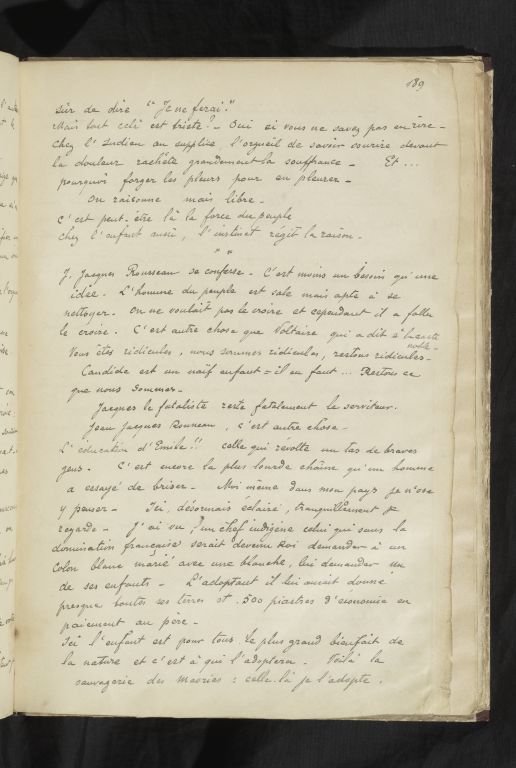 189
sûr de dire "Je ne ferai"
Mais tout celà est triste? - Oui si vous ne savez pas en rire -
Chez l'Indien au supplice l'orgueil de savoir sourire devant
la douleur rachète grandement la souffrance - Et ...
pourquoi forger les pleurs pour en pleurer -
On raisonne mais libre -
C'est peut-être là la force du peuple
chez l'enfant aussi, l'instinct régit la raison -
J. Jacques Rousseau se confesse - C'est moins un besoin qu'une
idée. L'homme du peuple est sale mais apte à se
nettoyer. On ne voulait pas le croire et cependant il a fallu
le croire. C'est autre chose que Voltaire qui a dit à
noble -
Vous êtes ridicules, nous sommes ridicules, restons ridicules -
Candide est un naïf enfant = il en faut ... Restons ce
que nous sommes -
Jacques le fataliste reste fatalement le serviteur.
Jean Jacques Rousseau, c'est autre chose -
L'éducation d'Emile!! celle qui révolte un tas de braves
gens - C'est encore la plus lourde chaîne qu'un homme
a essayé de briser - Moi même dans mon pays je n'ose
y penser - Ici, désormais éclairé, tranquillement je
regarde - J'ai vu, un chef indigène celui qui sans la
domination française serait devenu Roi demander à un
Colon blanc marié avec une blanche, lui demander un
de ses enfants - L'adoptant il lui aurait donné
presque toutes ses terres et 500 piastres d'économie en
paiement au père -
Ici l'enfant est pour tous le plus grand bienfait de
la nature et c'est à qui l'adoptera - Voilà la
sauvagerie des Maories : celle-là je l'adopte.